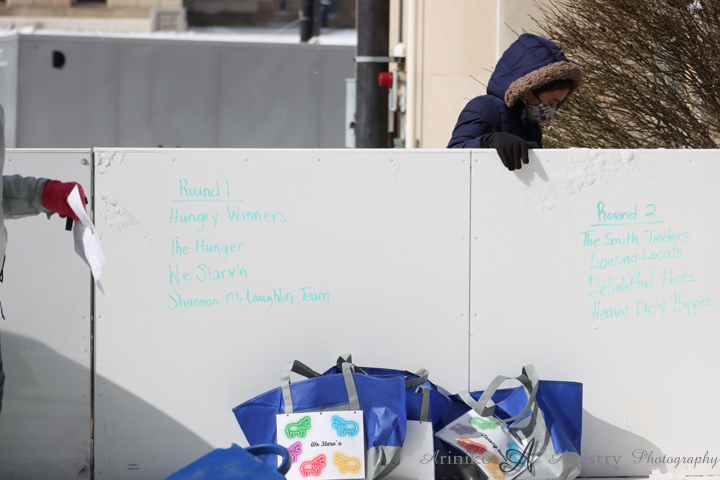 Round 1
Hungry Winners
The Hunger
We Starv'n
Shannon McLaughlin Team
Round 2
The Smith Tinders
Lansing Locals
Delightful Hoods
Heavy Duty Hippos
We Starv'n
Photography